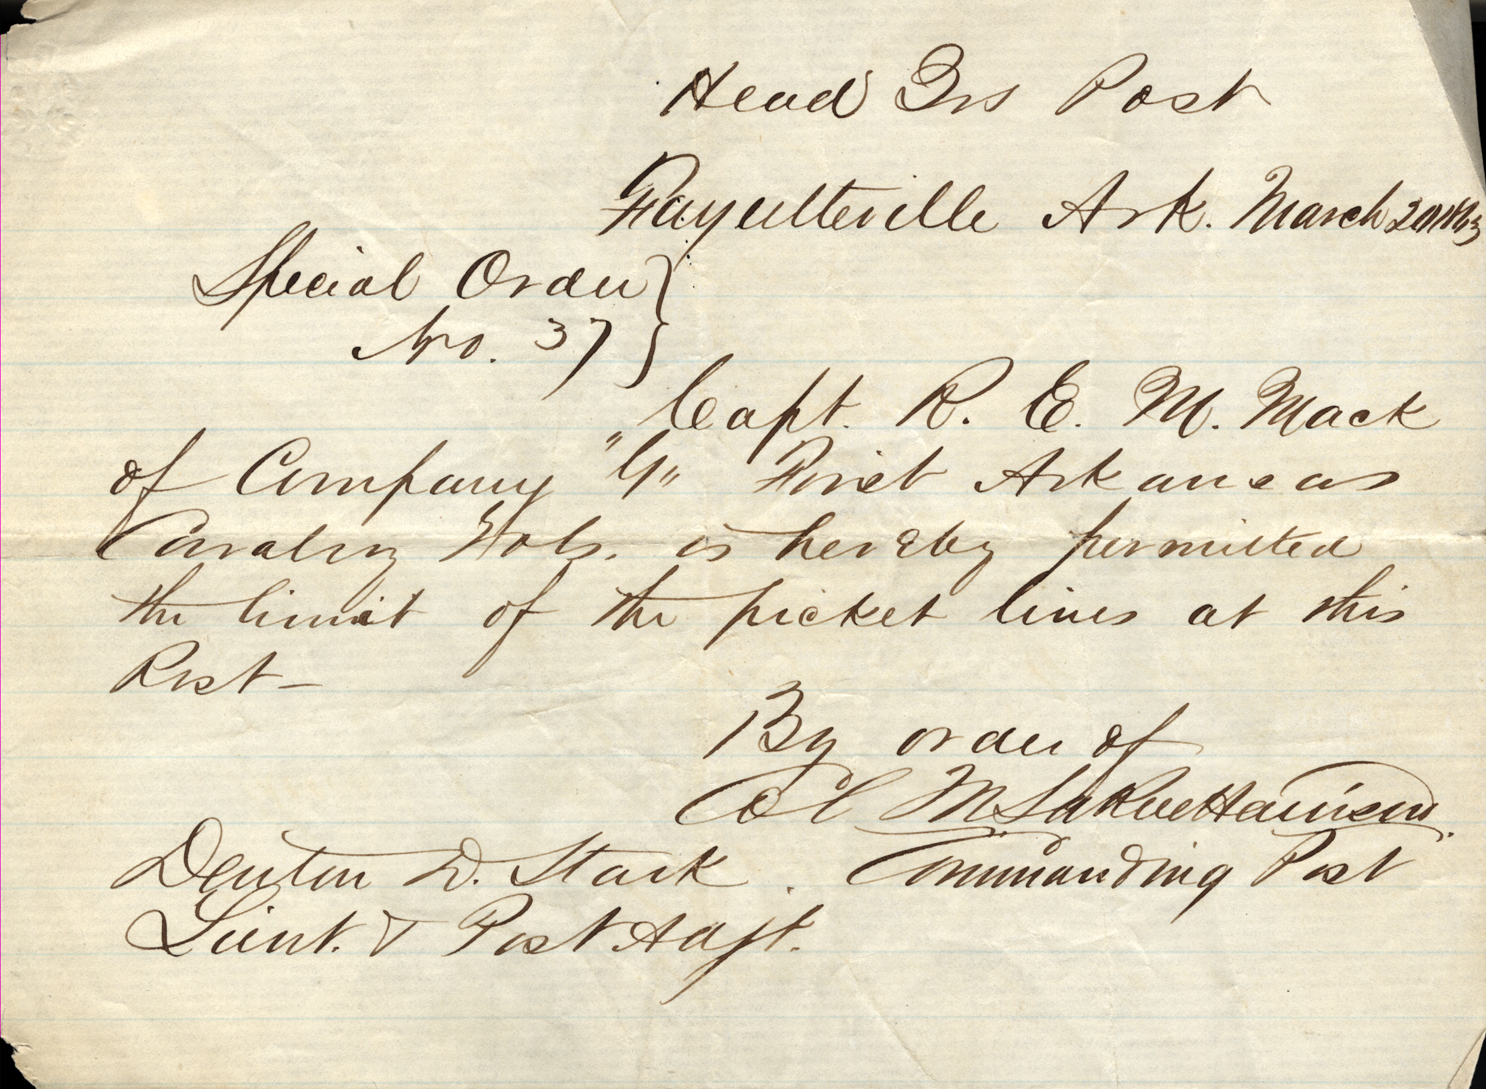 Head Qrs Post
Fayetteville Ark. March 20 1863
Special Order }
No. 37 }
Capt. R. E. M. Mack
of Company "G" First Arkansas
Cavalry Vols. is hereby permitted
the limit of the picket lines at this
Post—
By order of
Col M LaRue Harrison.
Denton D. Stark. Commanding Post
Lieut. & Post Adjt.